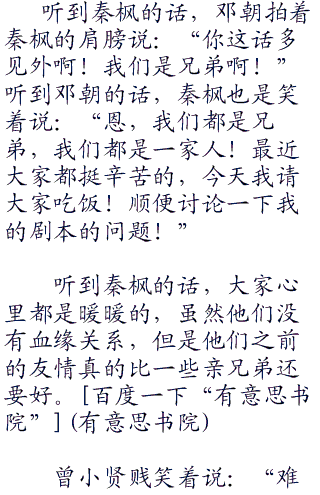 听到秦枫的话，邓朝拍着
秦枫的肩膀说：“你这话多
见外啊！我们是兄弟啊！”
听到邓朝的话，秦枫也是笑
着说：“恩，我们都是兄
弟，我们都是一家人！最近
大家都挺辛苦的，今天我请
大家吃饭！顺便讨论一下我
的剧本的问题！”
听到秦枫的话，大家心
里都是暖暖的，虽然他们没
有血缘关系，但是他们之前
的友情真的比一些亲兄弟还
要好。[百度一下“有意思书
院”](有意思书院)
曾小贤贱笑着说：“难